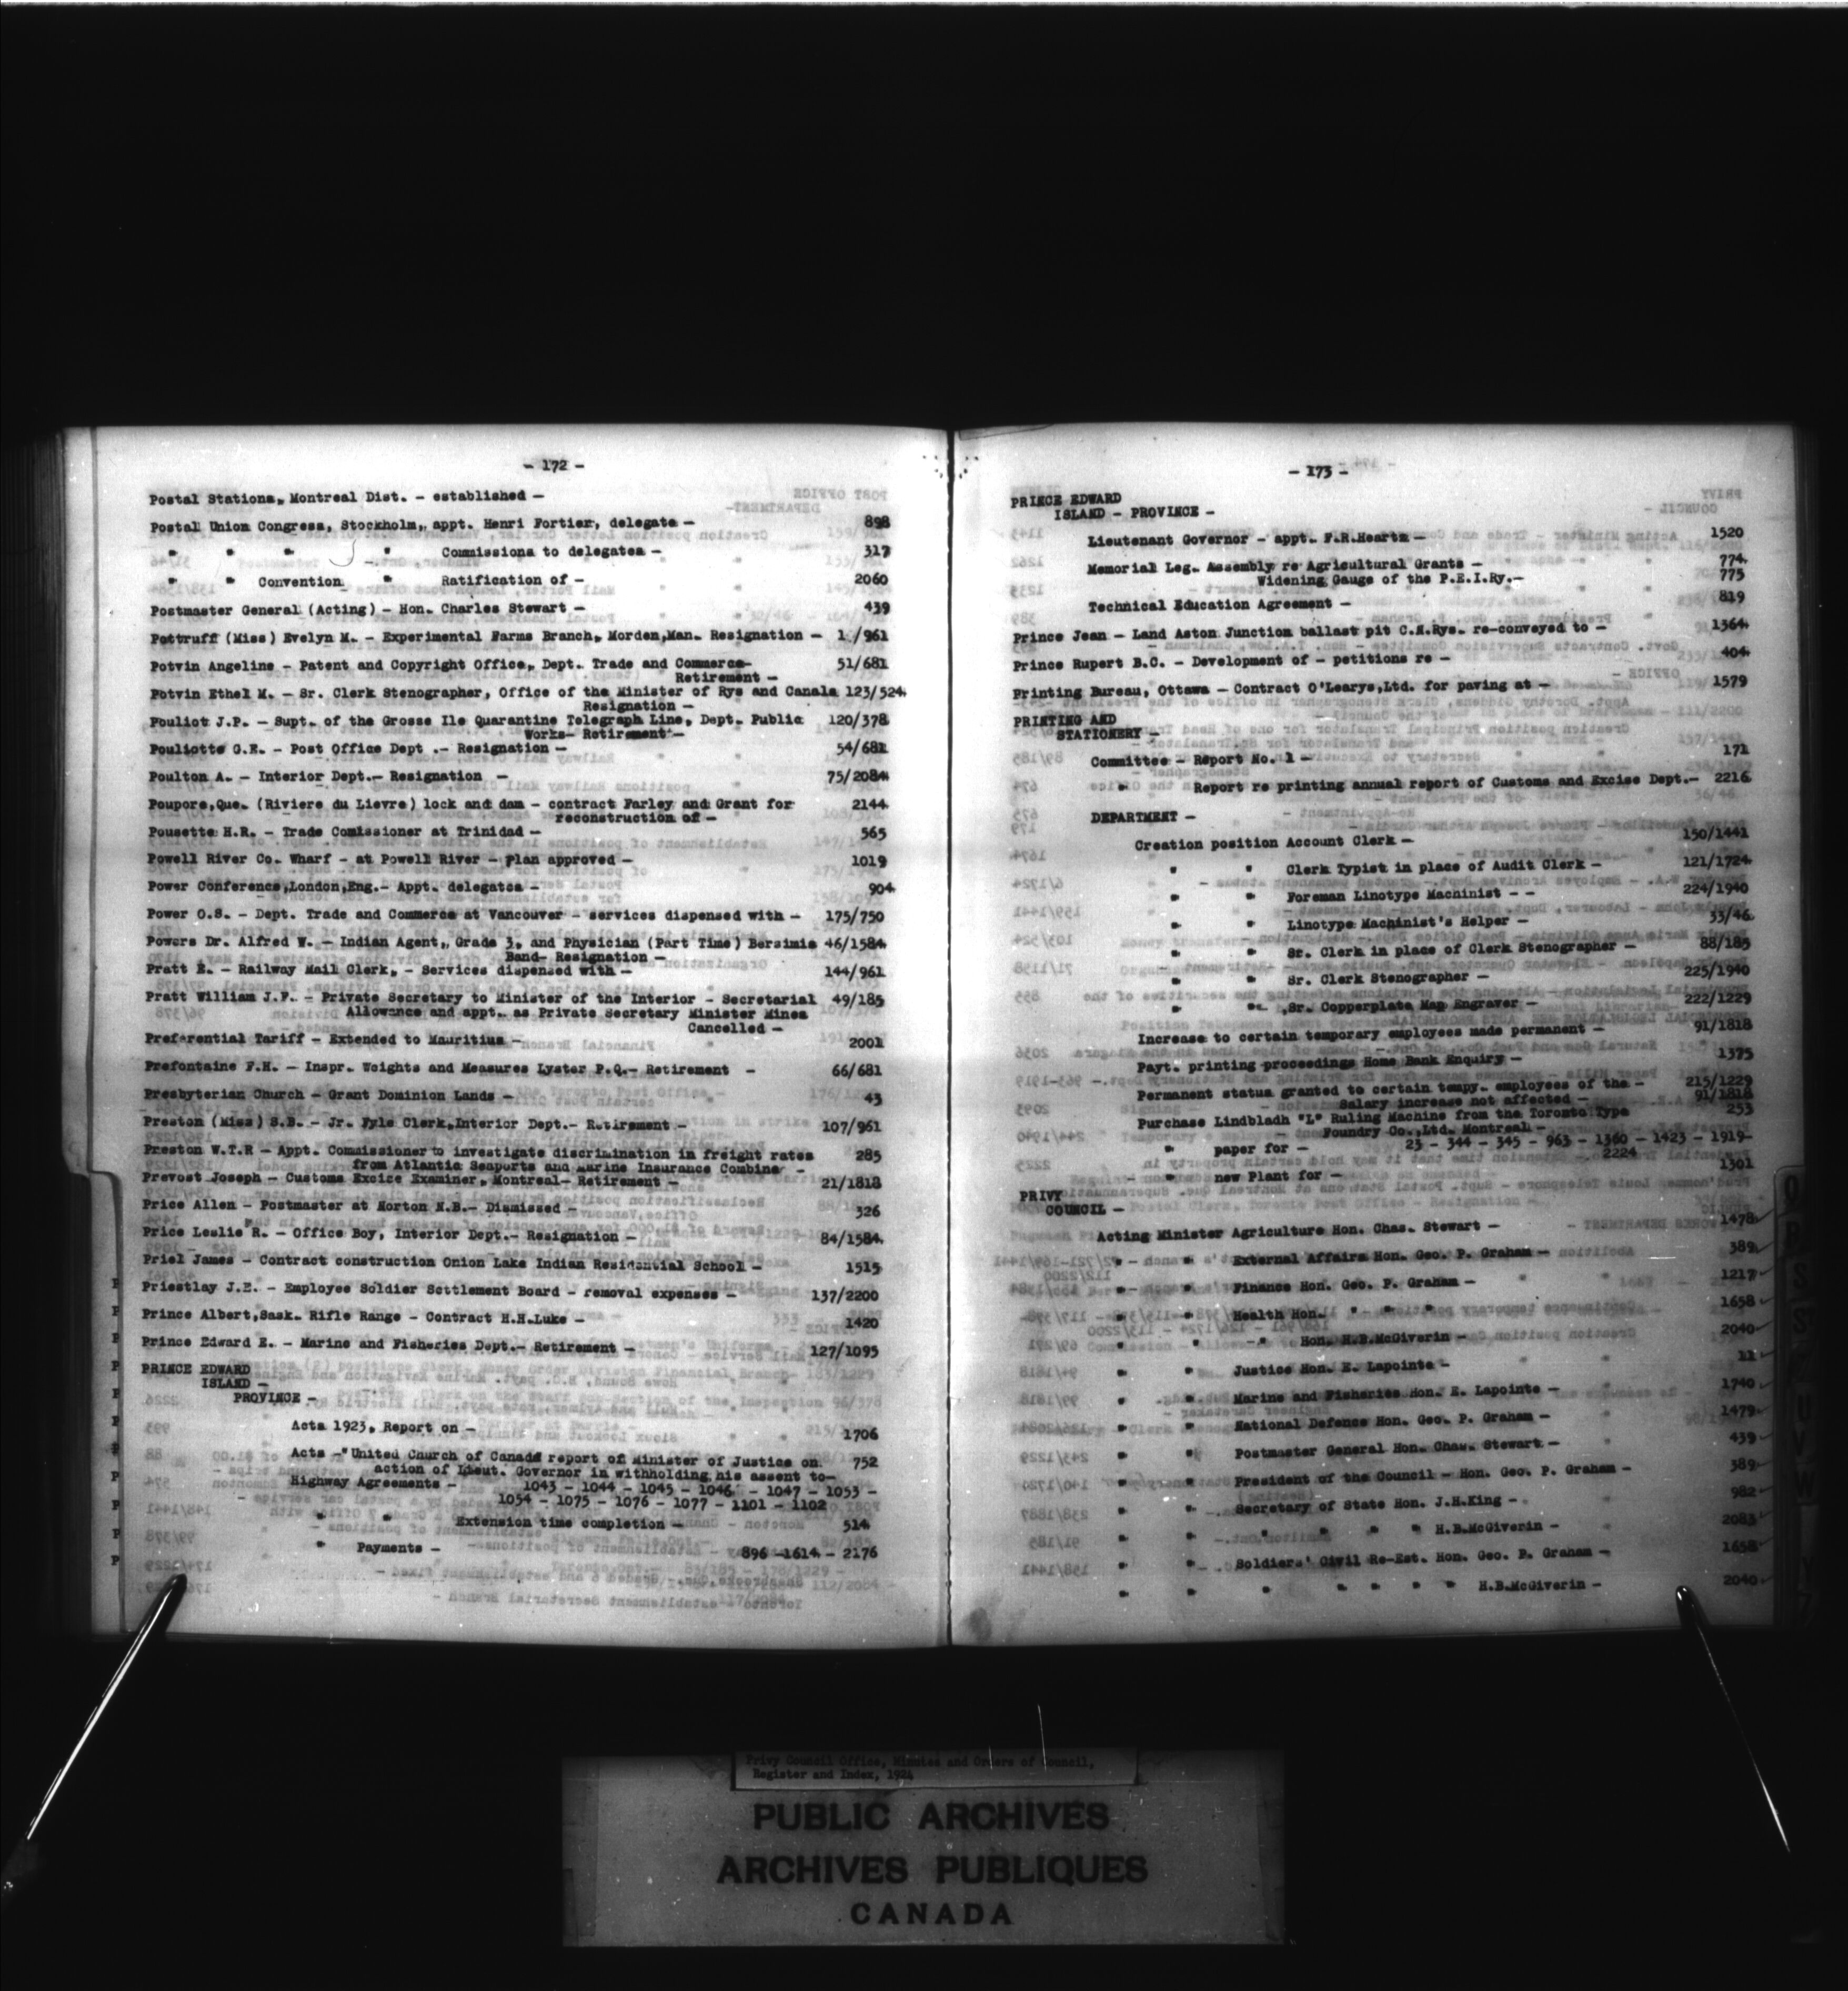 - 172 -
Postal Stations, Montreal Dist. - established -
Postal Union Congress, Stockholm, appt. Henri Fortier, delegate - 898
" " " " Commissions to delegates - 317
" " Convention " Ratification of - 2060
Postmaster General (Acting) - Hon. Charles Stewart - 439
Pottruff (Miss) Evelyn M. - Experimental Farms Branch, Morden,Man. Resignation - 1 /961
Potvin Angeline - Patent and Copyright Office, Dept. Trade and Commerce- 51/681
Retirement -
Potvin Ethel M. - Sr. Clerk Stenographer, Office of the Minister of Rys and Canals 123/524
Resignation -
Pouliot J.P. - Supt. of the Grosse Ile Quarantine Telegraph Line, Dept. Public 120/378
Works- Retirement -
Pouliotte G.E. - Post Office Dept .- Resignation - 54/681
Poulton A. - Interior Dept.- Resignation - 75/2084
Poupore,Que. (Riviere du Lievre) lock and dam - contract Farley and Grant for 2144
reconstruction of -
Pousette H.R. - Trade Comissioner at Trinidad - 565
Powell River Co. Wharf - at Powell River - Plan approved - 1019
Power Conference,London,Eng.- Appt. delegates - 904
Power O.S. - Dept. Trade and Commerce at Vancouver - services dispensed with - 175/750
Powers Dr. Alfred W. - Indian Agent, Grade 3, and Physician (Part Time) Bersimis 46/1584
Band- Resignation -
Pratt E. - Railway Mail Clerk, - Services dispensed with - 144/961
Pratt William J.F. - Private Secretary to Minister of the Interior - Secretarial 49/185
Allowance and appt. as Private Secretary Minister Mines
Cancelled -
Preferential Tariff - Extended to Mauritius - 2001
Prefontaine F.H. - Inspr. Weights and Measures Lyster P.Q.- Retirement - 66/681
Presbyterian Church - Grant Dominion Lands - 43
Preston (Miss) S.B. - Jr. Fyle Clerk,Interior Dept.- Retirement - 107/961
Preston W.T.R - Appt. Commissioner to investigate discrimination in freight rates 285
from Atlantic Seaports and Marine Insurance Combine -
Prevost Joseph - Customs Excice Examiner, Montreal- Retirement - 21/1818
Price Allen - Postmaster at Horton N.B.- Dismissed - 326
Price Leslie R. - Office Boy, Interior Dept.- Resignation - 84/1584
Priel James - Contract construction Onion Lake Indian Residential School - 1515
Priestlay J.E. - Employee Soldier Settlement Board - removal expenses - 137/2200
Prince Albert,Sask. Rifle Range - Contract H.H.Luke - 1420
Prince Edward E. - Marine and Fisheries Dept.- Retirement - 127/1095
PRINCE EDWARD
ISLAND -
PROVINCE -
Acts 1923, Report on - 1706
Acts -"United Church of Canada report of Minister of Justice on 752
action of Lieut. Governor in withholding his assent to-
Highway Agreements - 1043 - 1044 - 1045 - 1046 - 1047 - 1053 -
1054 - 1075 - 1076 - 1077 - 1101 - 1102
" " Extension time completion - 514
" Payments - 896 -1614 - 2176
- 173 -
PRINCE EDWARD
ISLAND - PROVINCE -
Lieutenant Governor - appt. F.R.Heartz - 1520
Memorial Leg. Assembly re Agricultural Grants - 774
Widening Gauge of the P.E.I.Ry.- 775
Technical Education Agreement - 819
Prince Jean - Land Aston Junction ballast pit C.N.Rys. re-conveyed to - 1364
Prince Rupert B.C. - Development of - petitions re - 404
Printing Bureau, Ottawa - Contract O'Learys,Ltd. for paving at - 1579
PRINTING AND
STATIONERY -
Committee - Report No. 1 - 171
" Report re printing annual report of Customs and Excise Dept.- 2216
DEPARTMENT -
Creation position Account Clerk - 150/1441
" " Clerk Typist in place of Audit Clerk - 121/1724
" " Foreman Linotype Machinist - - 224/1940
" " Linotype Machinist's Helper - 33/46
" " Sr. Clerk in place of Clerk Stenographer - 88/185
" " Sr. Clerk Stenographer - 225/1940
" " Sr. Copperplate Map Engraver - 222/1229
Increase to certain temporary employees made permanent - 91/1818
Payt. printing proceedings Home Bank Enquiry - 1375
Permanent status granted to certain tempy. employees of the - 215/1229
Salary increase not affected - 91/1818
Purchase Lindbladh "L" Ruling Machine from the Toronto Type 253
Foundry Co.,Ltd. Montreal -
" paper for - 23 - 344 - 345 - 963 - 1360 - 1423 - 1919-
2224
" new Plant for - 1301
PRIVY
COUNCIL -
Acting Minister Agriculture Hon. Chas. Stewart - 1478
" " External Affairs Hon. Geo. P. Graham - 389
" " Finance Hon. Geo. P. Graham - 1217
" " Health Hon. " " " 1658
" " " Hon. H.B.McGiverin - 2040
" " Justice Hon. E. Lapointe - 11
" " Marine and Fisheries Hon. E. Lapointe - 1740
" " National Defence Hon. Geo. P. Graham - 1479
" " Postmaster General Hon. Chas. Stewart - 439
" " President of the Council - Hon. Geo. P. Graham - 389
" " Secretary of State Hon. J.H.King - 982
" " " " " " H.B.McGiverin - 2083
" " Soldiers' Civil Re-Est. Hon. Geo. P. Graham - 1658
" " " " " " " H.B.McGiverin - 2040
Privy Council Office, Minutes and Orders of Council,
Register and Index, 1924
PUBLIC ARCHIVES
ARCHIVES PUBLIQUES
CANADA